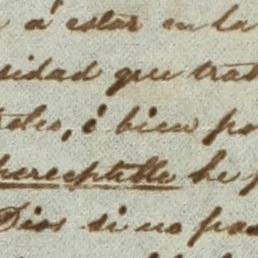 á estar en la
sidad que trat
tales, ó bien po
perceptible he p
Dios si no pa